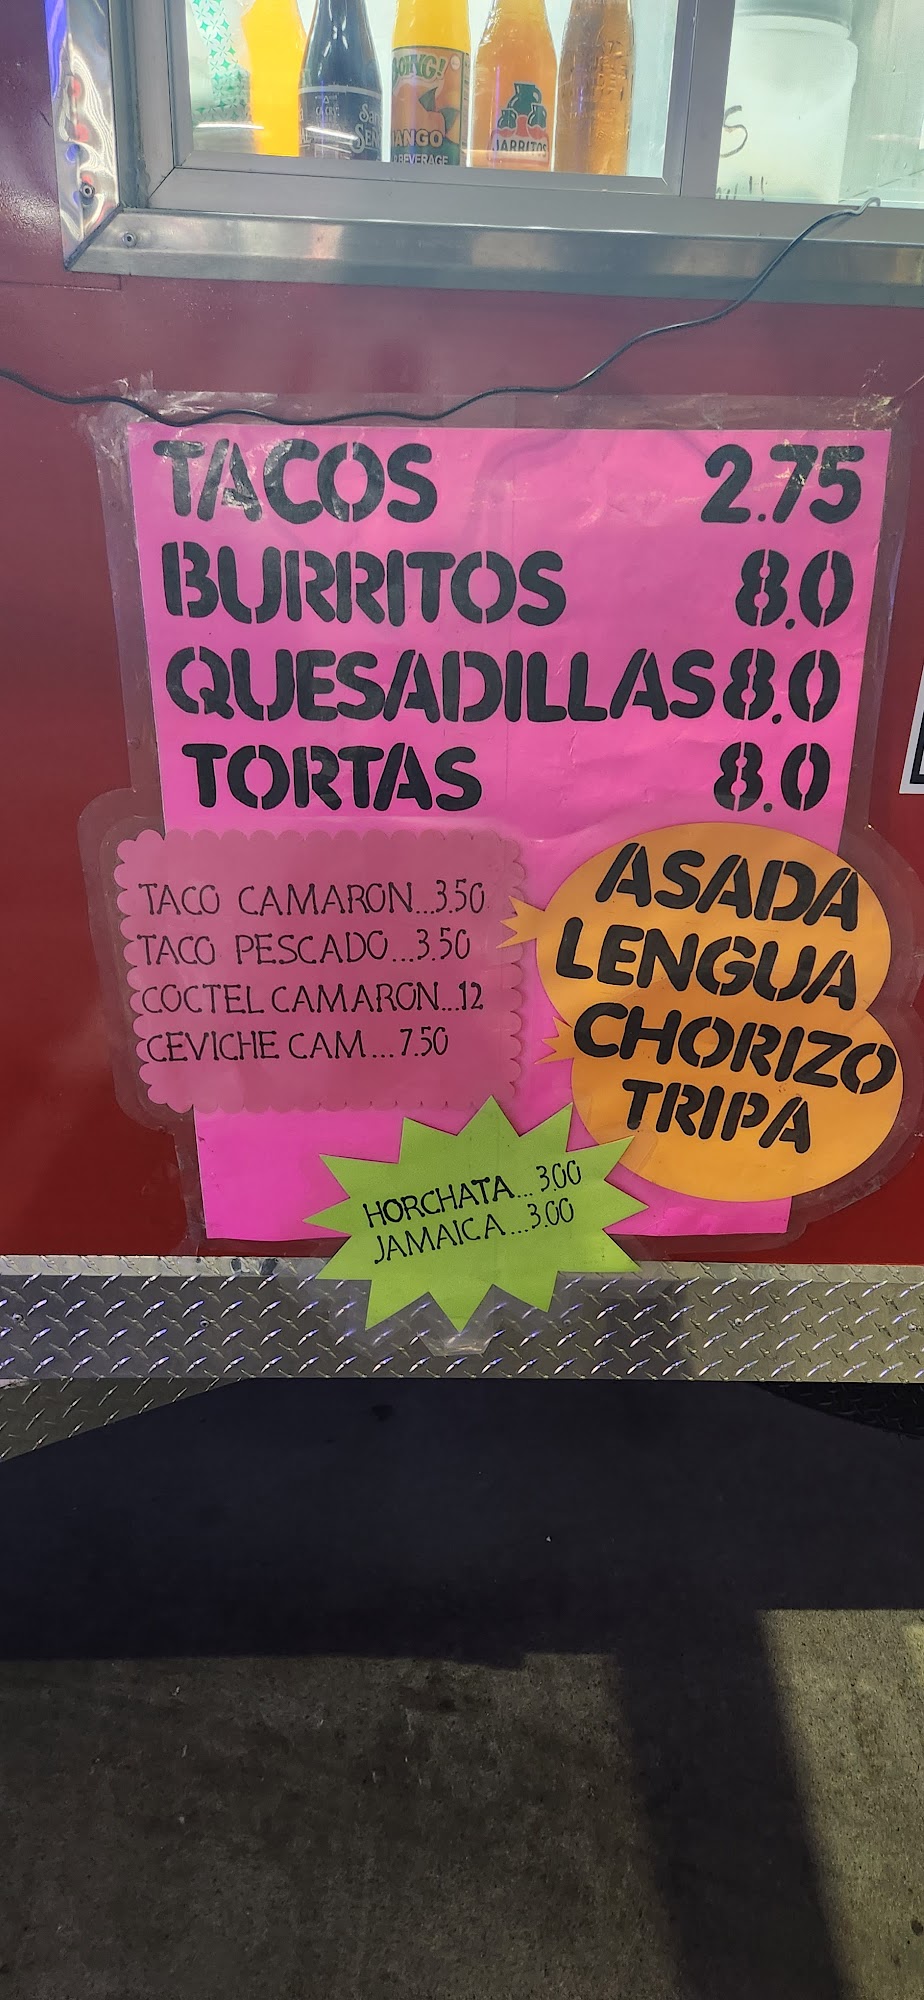 BOING!
MANGO
BEVERAGE
JARRITOS
TACOS 2.75
BURRITOS 8.0
QUESADILLAS 8.0
TORTAS 8.0
TACO CAMARON...3.50
TACO PESCADO...3.50
COCTEL CAMARON...12
CEVICHE CAM...7.50
ASADA
LENGUA
CHORIZO
TRIPA
HORCHATA...3.00
JAMAICA...3.00